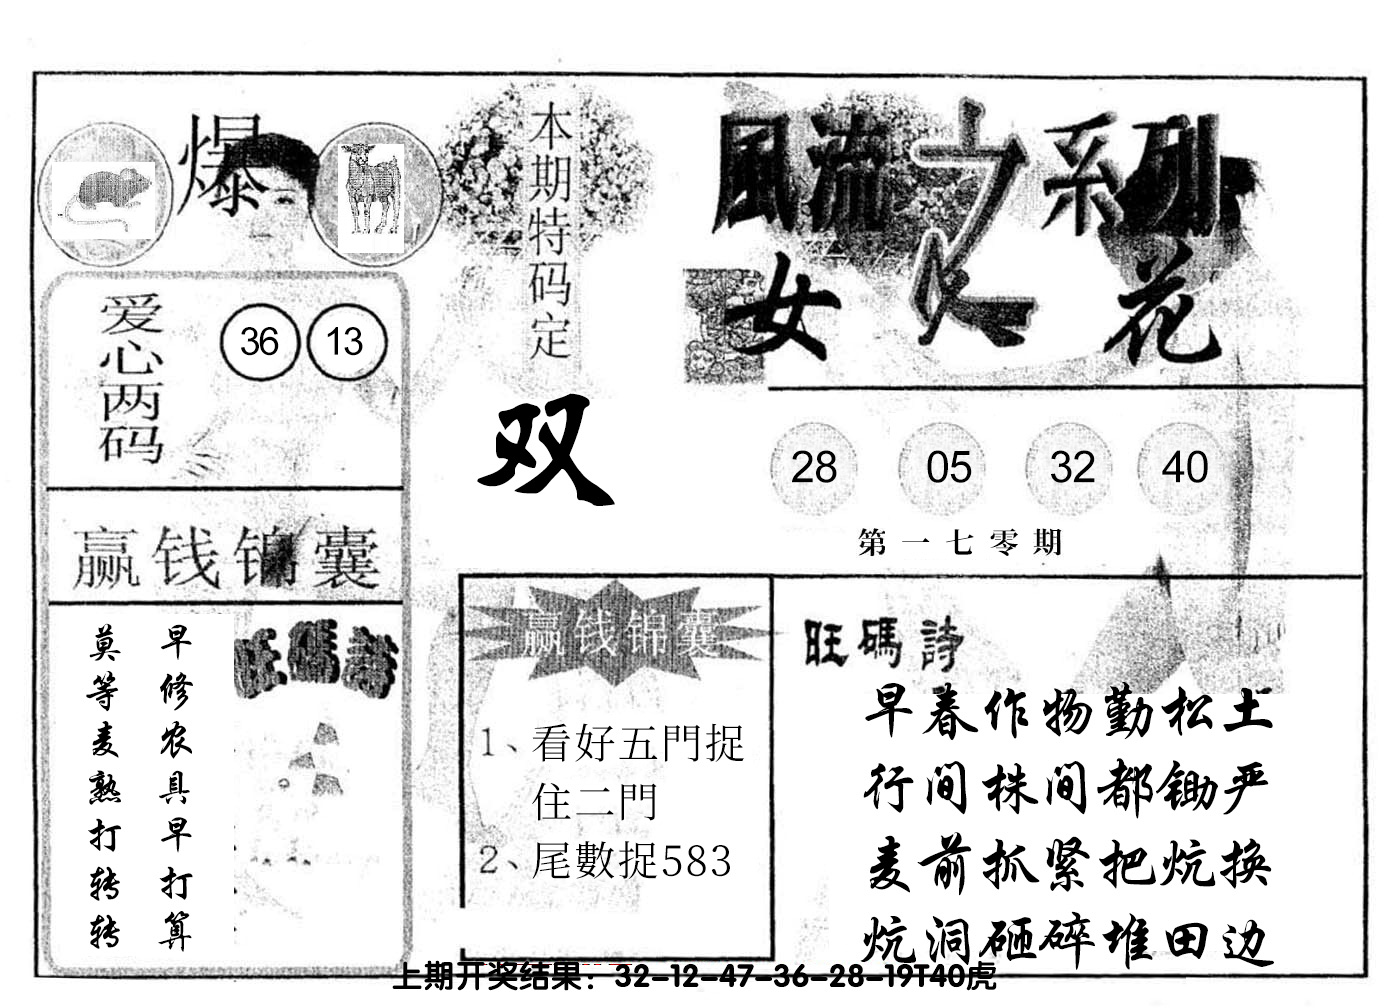 爆
本期特码定
双
風流之系列
女人花
爱心两码
36 13
赢钱锦囊
早修农具早打算
莫等麦熟打转转
旺碼詩
28 05 32 40
第一七零期
赢钱锦囊
1、看好五門捉
住二門
2、尾數捉583
旺碼詩
早春作物勤松土
行间株间都锄严
麦前抓紧把炕换
炕洞砸碎堆田边
上期开奖结果：32-12-47-36-28-19T40虎